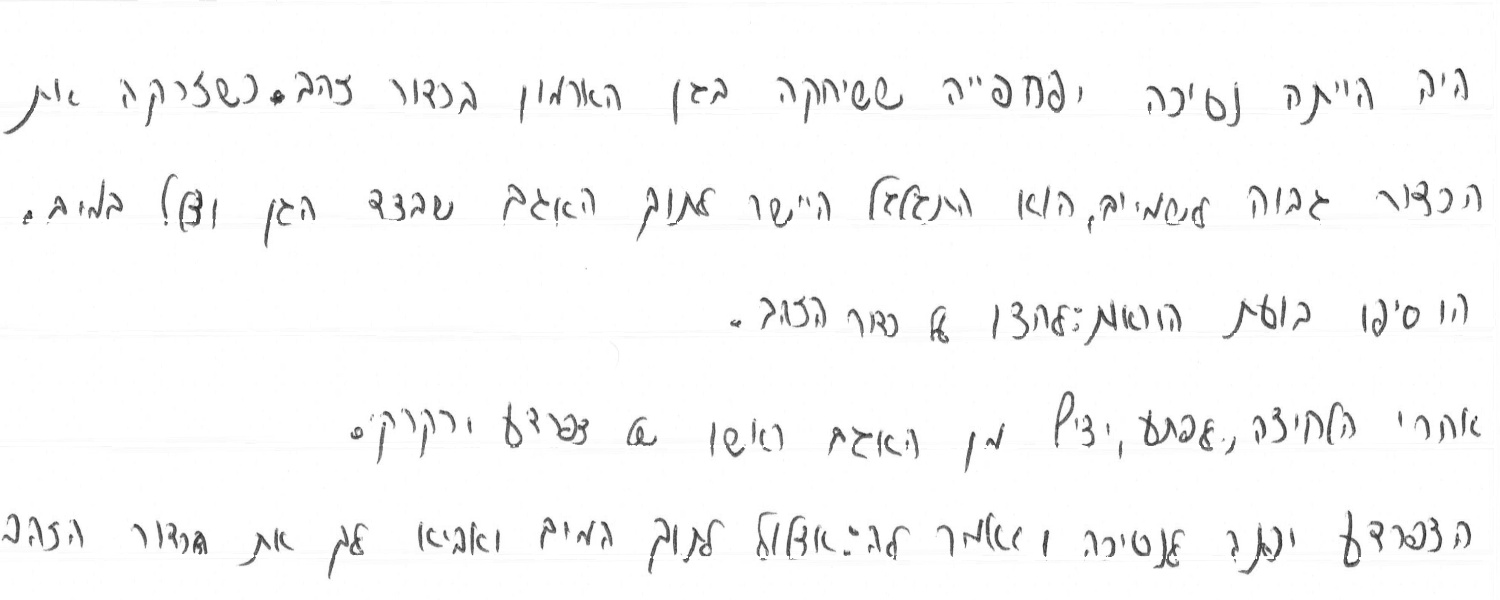 היה הייתה נסיכה יפהפייה ששיחקה בגן הארמון בכדור זהב. כשזרקה את
הכדור גבוה לשמיים, הוא התגלגל היישר לתוך האגם שבצד הגן וצלל במים.
הוסיפו בועת הוראות: לחצו על כדור הזהב.
אחרי הלחיצה, לפתע, יציץ מן האגם ראשו של צפרדע ירקרק.
הצפרדע לנסיכה ויאמר לה: אצלול לתוך המים ואביא לך את כדור הזהב